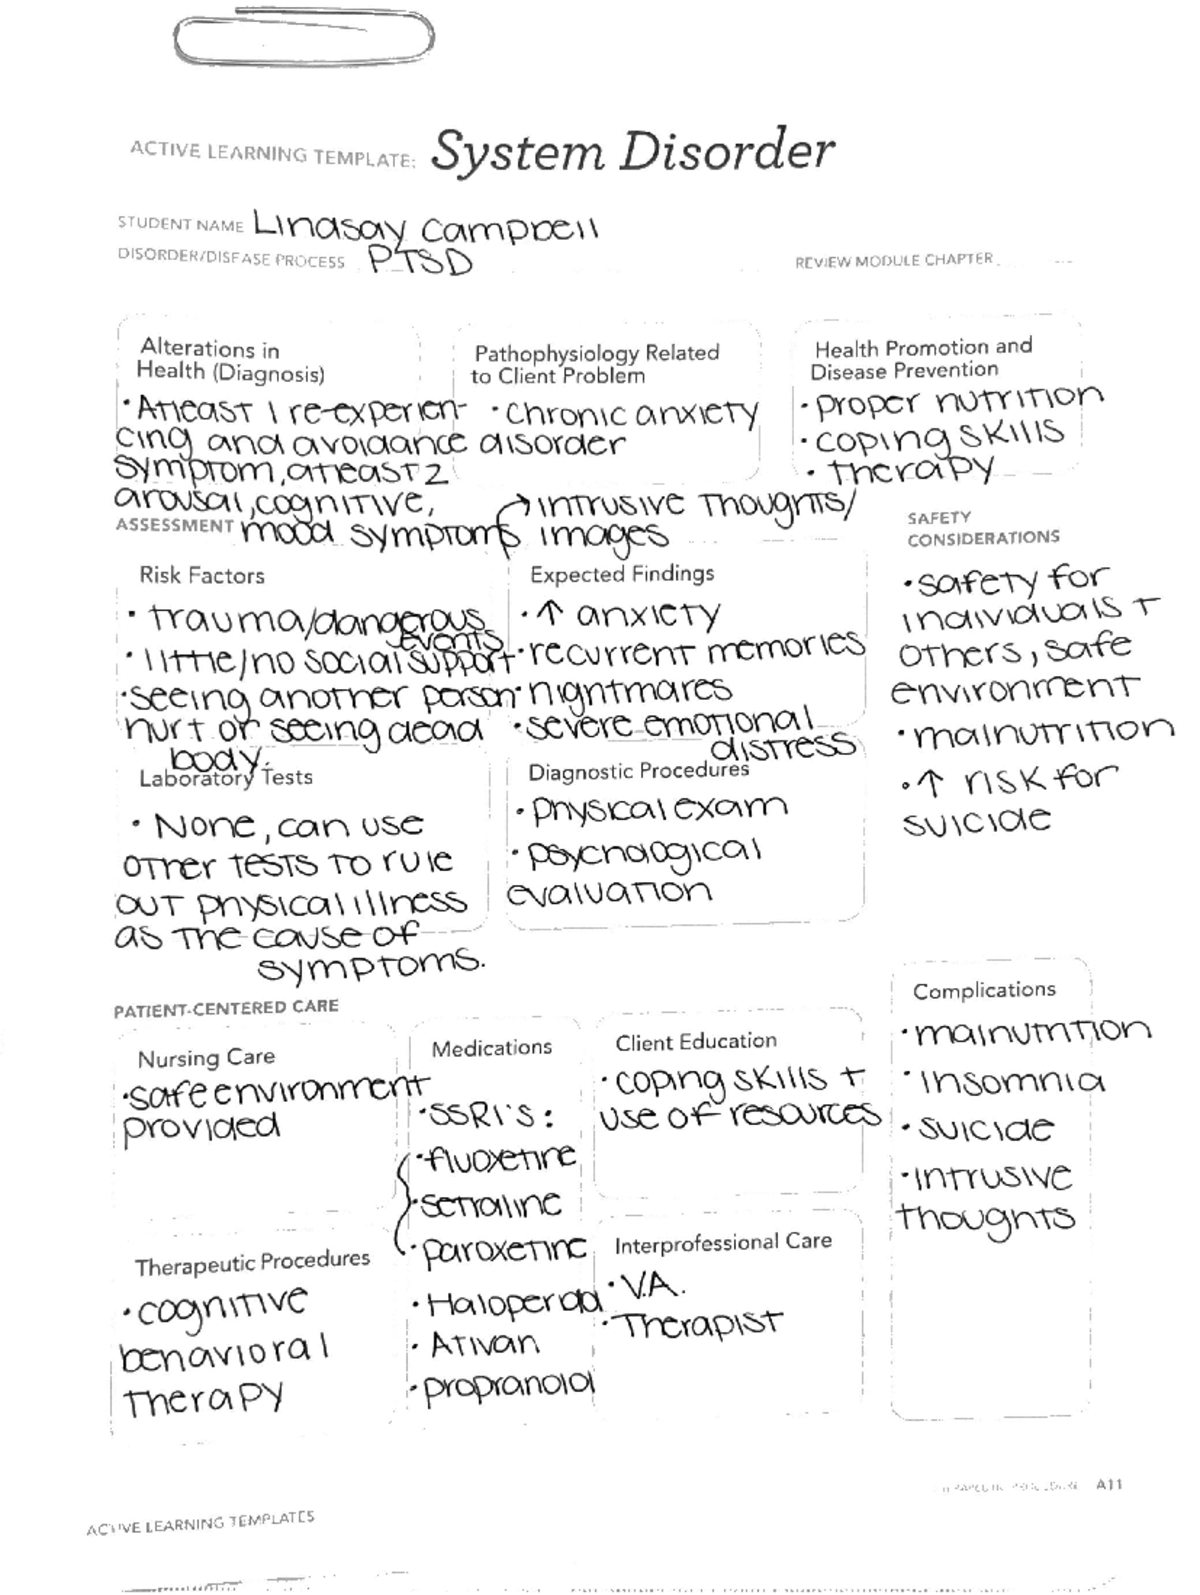 ACTIVE LEARNING TEMPLATE: System Disorder
STUDENT NAME Lindsay Campbell
DISORDER/DISEASE PROCESS PTSD
REVIEW MODULE CHAPTER
Alterations in
Health (Diagnosis)
• Atleast 1 re-experien-
cing and avoidance
symptom, atleast 2
arousal, cognitive,
mood symptoms
Pathophysiology Related
to Client Problem
• chronic anxiety
disorder
Health Promotion and
Disease Prevention
• proper nutrition
• coping skills
• therapy
ASSESSMENT
→ intrusive thoughts/
images
SAFETY
CONSIDERATIONS
• safety for
individuals +
others, safe
environment
• malnutrition
• ↑ risk for
suicide
Risk Factors
• trauma/dangerous
events
• little/no social support
• seeing another person
hurt or seeing dead
body.
Expected Findings
• ↑ anxiety
• recurrent memories
• nightmares
• severe emotional
distress
Laboratory Tests
• None, can use
other tests to rule
out physical illness
as the cause of
symptoms.
Diagnostic Procedures
• physical exam
• psychological
evaluation
PATIENT-CENTERED CARE
Nursing Care
• safe environment
provided
Medications
• SSRI's:
• fluoxetine
• setraline
• paroxetine
• Haloperidol
• Ativan
• propranolol
Client Education
• coping skills +
use of resources
Therapeutic Procedures
• cognitive
behavioral
therapy
Interprofessional Care
• V.A.
• Therapist
Complications
• malnutrition
• insomnia
• suicide
• intrusive
thoughts
ACTIVE LEARNING TEMPLATES
A11